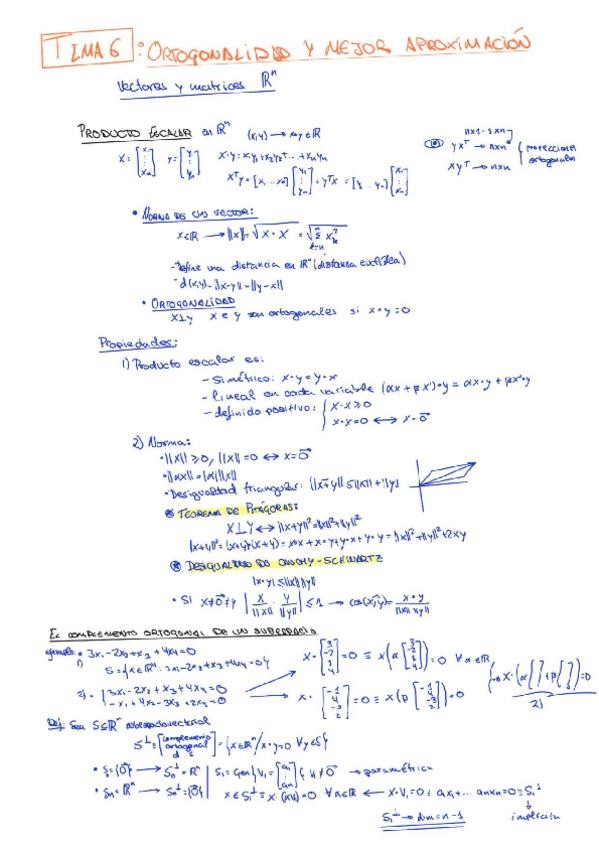 TEMA 6: ORTOGONALIDAD Y MEJOR APROXIMACIÓN
Vectores y matrices ℝⁿ
PRODUCTO ESCALAR en ℝⁿ (x,y) → x•y ∈ ℝ
x = [x₁ ⋮ xₙ] y = [y₁ ⋮ yₙ] x•y = x₁y₁ + x₂y₂ + ... + xₙyₙ
xᵀy = [x₁ ... xₙ] [y₁ ⋮ yₙ] = yᵀx = [y₁ ... yₙ] [x₁ ⋮ xₙ]
nx1 · 1xn
yxᵀ → nxn
xyᵀ → nxn
proyecciones ortogonales
• NORMA DE UN VECTOR:
x∈ℝ → ||x|| = √(x•x) = √(Σ xₖ²)
- Define una distancia en ℝⁿ (distancia euclídea)
- d(x,y) = ||x-y|| = ||y-x||
• ORTOGONALIDAD
x⊥y x e y son ortogonales si x•y=0
Propiedades:
1) Producto escalar es:
- simétrico: x•y = y•x
- lineal en cada variable (αx + βx')•y = αx•y + βx'•y
- definido positivo: { x•x ≥ 0
x•x = 0 ↔ x = 0⃗
2) Norma:
• ||x|| ≥ 0, ||x|| = 0 ↔ x = 0⃗
• ||αx|| = |α| ||x||
• Desigualdad triangular: ||x+y|| ≤ ||x|| + ||y||
* TEOREMA DE PITÁGORAS:
x⊥y ↔ ||x+y||² = ||x||² + ||y||²
||x+y||² = (x+y)•(x+y) = x•x + x•y + y•x + y•y = ||x||² + ||y||² + 2xy
* DESIGUALDAD DE CAUCHY-SCHWARTZ
|x•y| ≤ ||x|| ||y||
• Si x≠0⃗≠y | x/||x|| · y/||y|| | ≤ 1 → cos(x,y) = x•y / ||x|| ||y||
EL COMPLEMENTO ORTOGONAL DE UN SUBESPACIO
ejemplo: • 3x₁ - 2x₂ + x₃ + 4x₄ = 0
1) S = {x∈ℝⁿ: 3x₁ - 2x₂ + x₃ + 4x₄ = 0}
x • [3 -2 1 4] = 0 ≡ x(α [3 -2 1 4]) = 0 ∀α∈ℝ
2) { 3x₁ - 2x₂ + x₃ + 4x₄ = 0
-x₁ + 4x₂ - 3x₃ + 2x₄ = 0
x • [-1 4 -3 2] = 0 ≡ x(β [-1 4 -3 2]) = 0
→ x•(α[ ] + β[ ]) = 0
2)
Def: Sea S⊆ℝⁿ subespacio vectorial
S⊥ = [complemento ortogonal d S] = {x∈ℝⁿ / x•y=0 ∀y∈S}
• S₀ = {0⃗} → S₀⊥ = ℝⁿ | S₁ = Gen{v₁ = [a₁ ⋮ aₙ]} v₁ ≠ 0⃗ → paramétrica
• Sₙ = ℝⁿ → Sₙ⊥ = {0⃗} x∈S₁⊥ ≡ x•(αv₁) = 0 ∀α∈ℝ ← x•v₁ = 0 ≡ a₁x₁ + ... aₙxₙ = 0 ≡ S₁⊥
implícita
S₁⊥ → dim = n-1